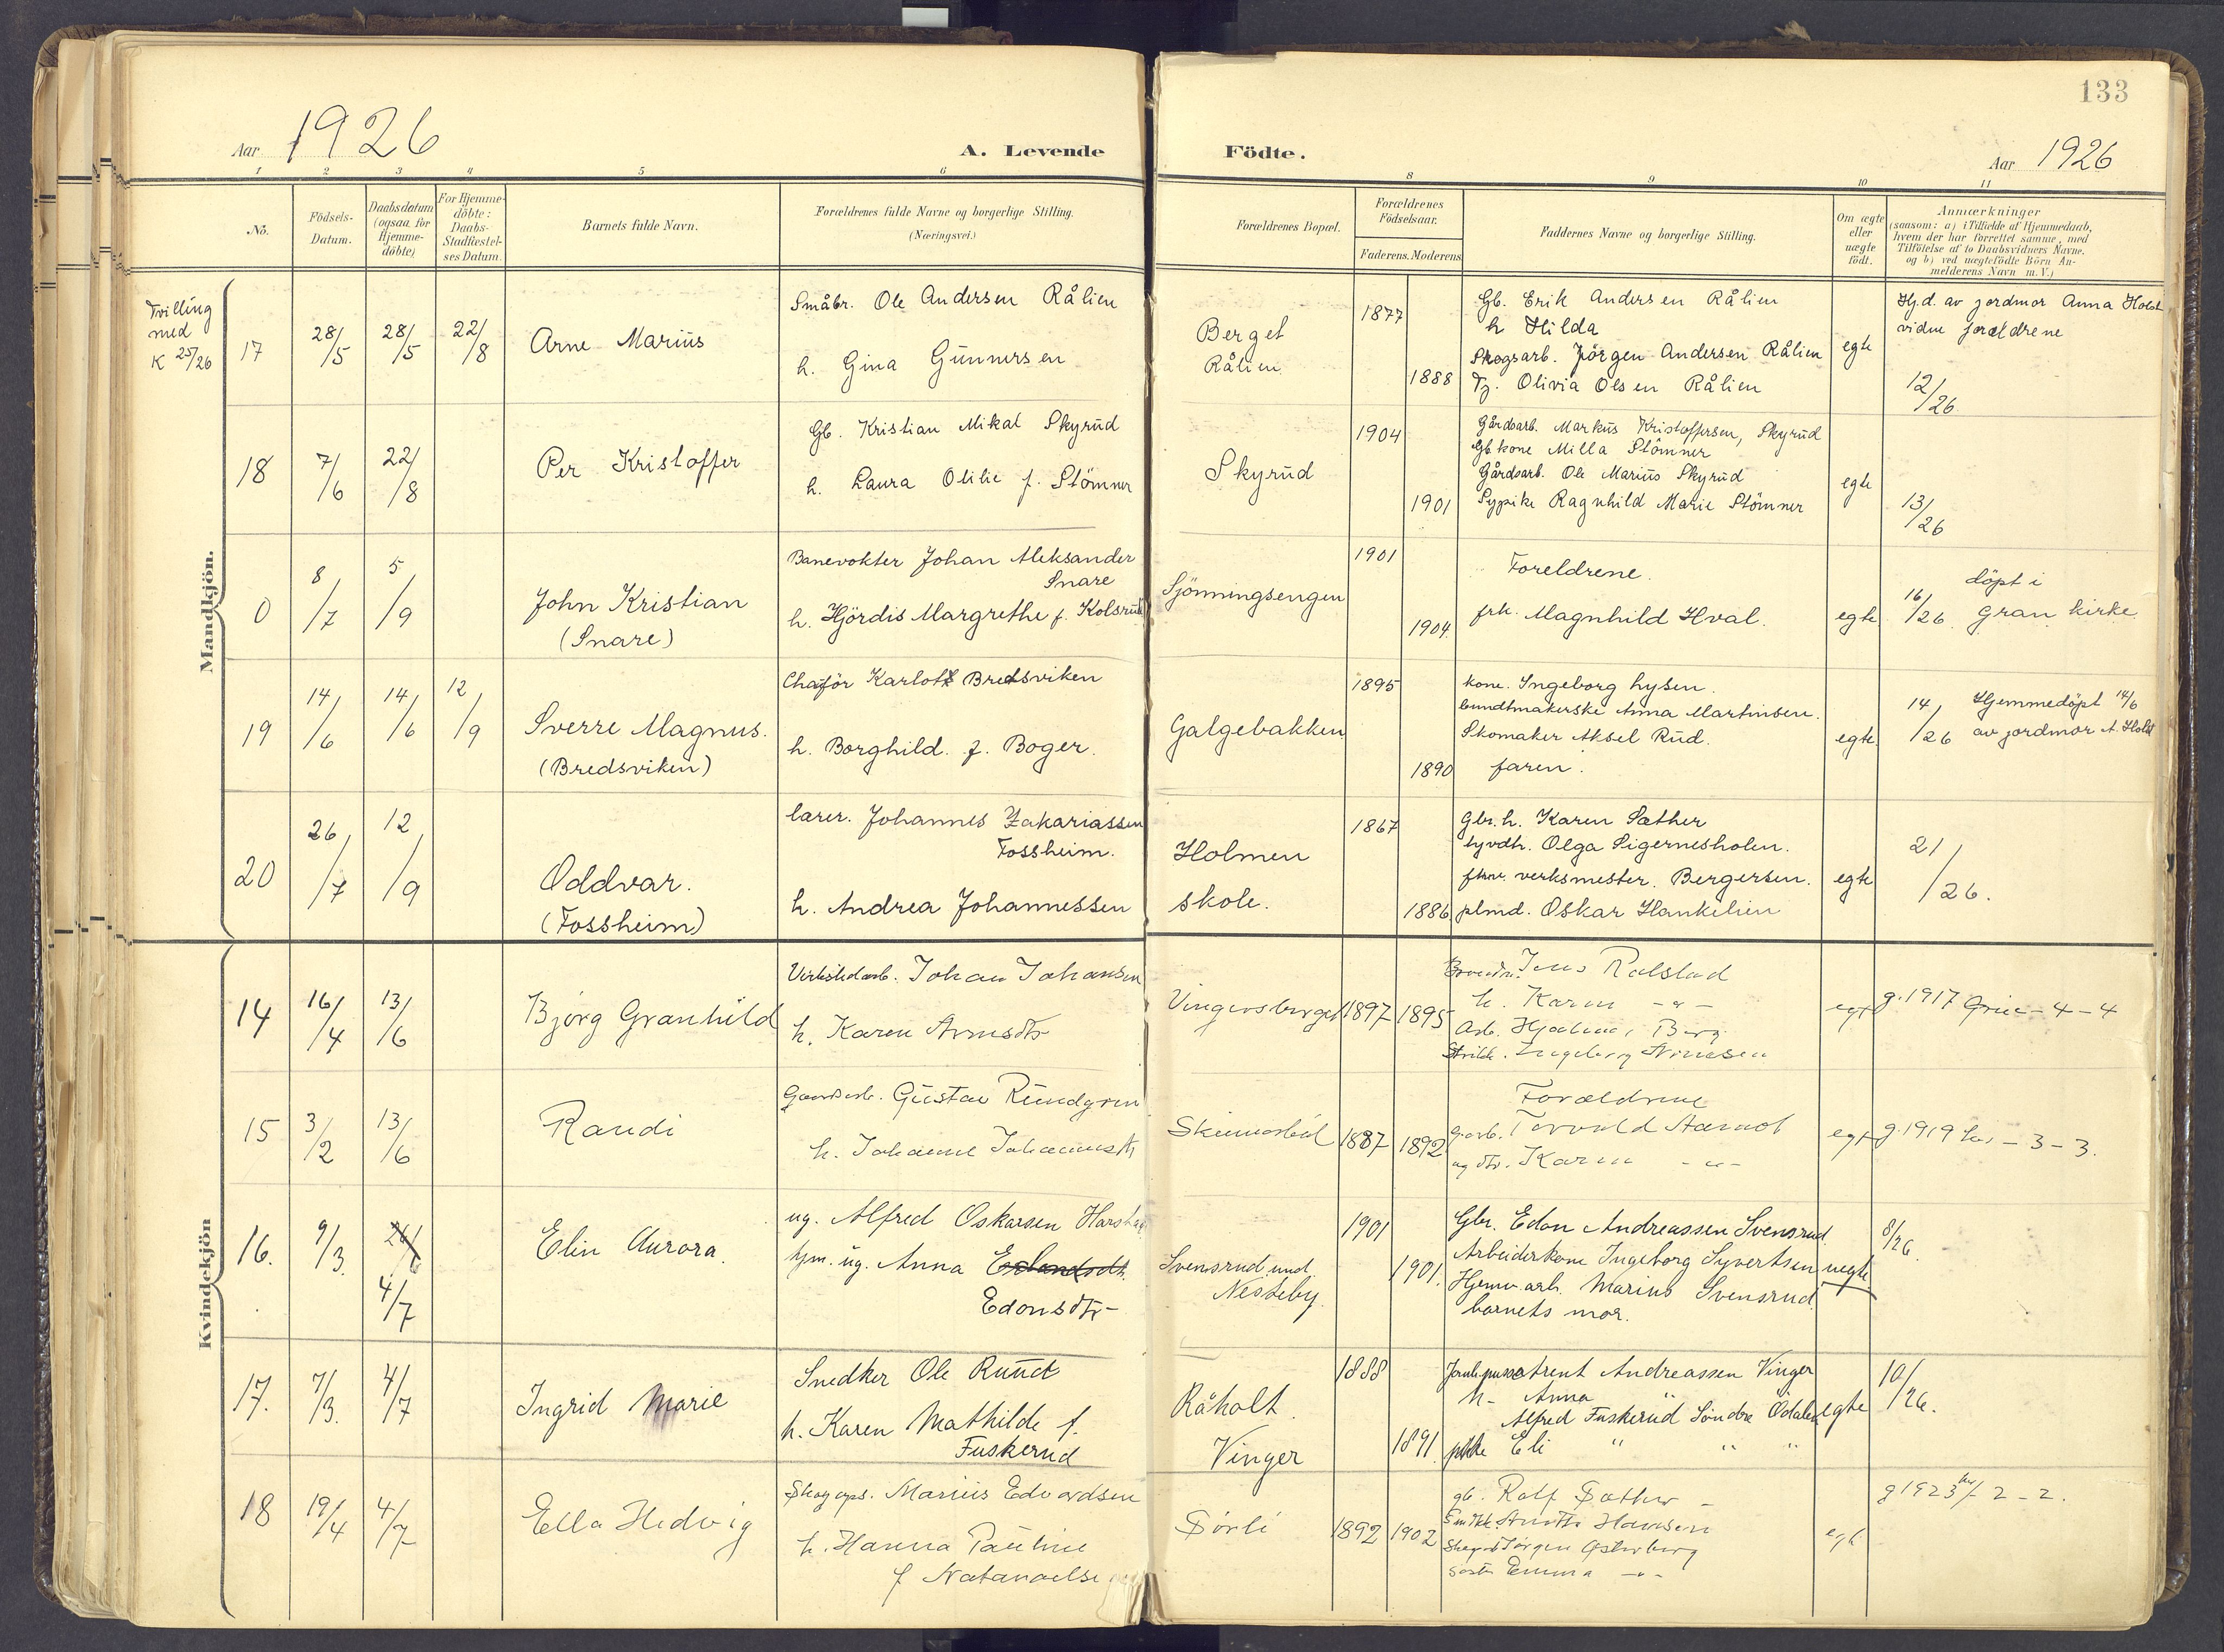 133
Aar 1926
A. Levende
Födte.
Aar 1926
1 2 3 4 5 6 8 9 10 11
No.
Födsels-
Datum.
Daabsdatum
(ogsaa for
Hjemme-
döbte)
For Hjemme-
döbte:
Daabs-
Stadfæstel-
ses Datum.
Barnets fulde Navn.
Forældrenes fulde Navne og borgerlige Stilling.
(Næringsvei.)
Forældrenes Bopæl.
Forældrenes
Födselsaar.
Faderens. Moderens
Faddernes Navne og borgerlige Stilling.
Om ægte
eller
uægte
födt.
Anmærkninger
(saasom: a) i Tilfælde af Hjemmedaab,
hvem der har forrettet samme, med
Tilföielse af to Daabsvidners Navne.
og b) ved uægtefödte Börn An-
melderens Navn m. V.)
Mandkjön.
Tvilling
med
K 25/26
17
28/5
28/5
22/8
Arne Marius
Småbr. Ole Andersen Rålien
h. Gina Gunnersen
Berget
Rålien
1877
1888
Gb. Erik Andersen Rålien
h Hilda
Skogsarb. Jörgen Andersen Rålien
Tj. Olivia Olsen Rålien
egte
Hj.d. av jordmor Anna Holst
vidne foreldrene
12/26
18
7/6
22/8
Per Kristoffer
Gb. Kristian Mikal Skyrud
h. Laura Otilie f. Stömner
Skyrud
1904
1901
Gårdsarb. Markus Kristoffersen, Skyrud
Gb.kone Milla Stömner
Gårdsarb. Ole Marius Skyrud
Sypike Ragnhild Marie Stömner
egte
13/26
0
8/7
5/9
John Kristian
(Snare)
Banevokter Johan Aleksander
Snare
h. Hjördis Margrethe f. Kolsrud
Sjönningsengen
1901
1904
Foreldrene.
frk. Magnhild Hval.
egte
16/26
döpt i
Gran kirke
19
14/6
14/6
12/9
Sverre Magnus.
(Bredsviken)
Chaför Karlot Bredsviken
h. Borghild. f. Boger.
Galgebakken
1895
1890
kone. Ingeborg hysen.
bundtmakerske Anna Martinsen.
Skomaker Aksel Rud.
faren.
egte
14/26
Hjemmedöpt 14/6
av jordmor A. Holst
20
26/7
12/9
Oddvar.
(Fossheim)
lærer. Johannes Zakariassen
Fossheim.
h. Andrea Johannessen
Holmen
skole.
1867
1886
Gbr.h. Karen Sæther
Olga Sigernesholen.
verksmester. Bergersen.
plmd. Oskar Hankelien
egte
21/26.
Kvindekjön
14
16/4
13/6
Bjørg Granhild
Johan Johansen
h. Karen Arnesdtr
Vingersberget
1897
1895
Jens Rolstad
h. Karen - " -
Arb. Hjalmar Berg
Ingeborg Arnesen
g. 1917 - 4 - 4
15
3/2
13/6
Randi
Gaardsarb. Gustav Rundgren
h. Johanne Johannesdtr
1887
1892
Forældrene
Karen - " -
g. 1919 - 3 - 3.
16.
9/3.
4/7
Elin Aurora.
ug. Alfred Oskarsen
hjm. ug. Anna
Edonsdtr-
Svensrud und.
Nesteby.
1901
1901.
Gbr. Edon Andreassen Svensrud.
Arbeiderkone Ingeborg Syvertsen
Hjemv. arb. Marius Svensrud.
barnets mor.
uegte
8/26
17.
7/3.
4/7
Ingrid Marie
Snedker Ole Rund
h. Karen Mathilde f.
Fuskerud
Råholt.
Vinger
1888
1891.
Andreassen Vinger
h- Anna "
Alfred Fuskerud Söndre Odalen
pike Eli " " "
egte
10/26.
18
19/4
4/7
Ella Hedvig
Marius Edvardsen
h. Hanna Pauline
f Natanaelse
Sörli
1892
1902
gb. Rolf Sæther -
Hansen
Jörgen Osterberg
Emma - " -
g 1923 2 - 2.